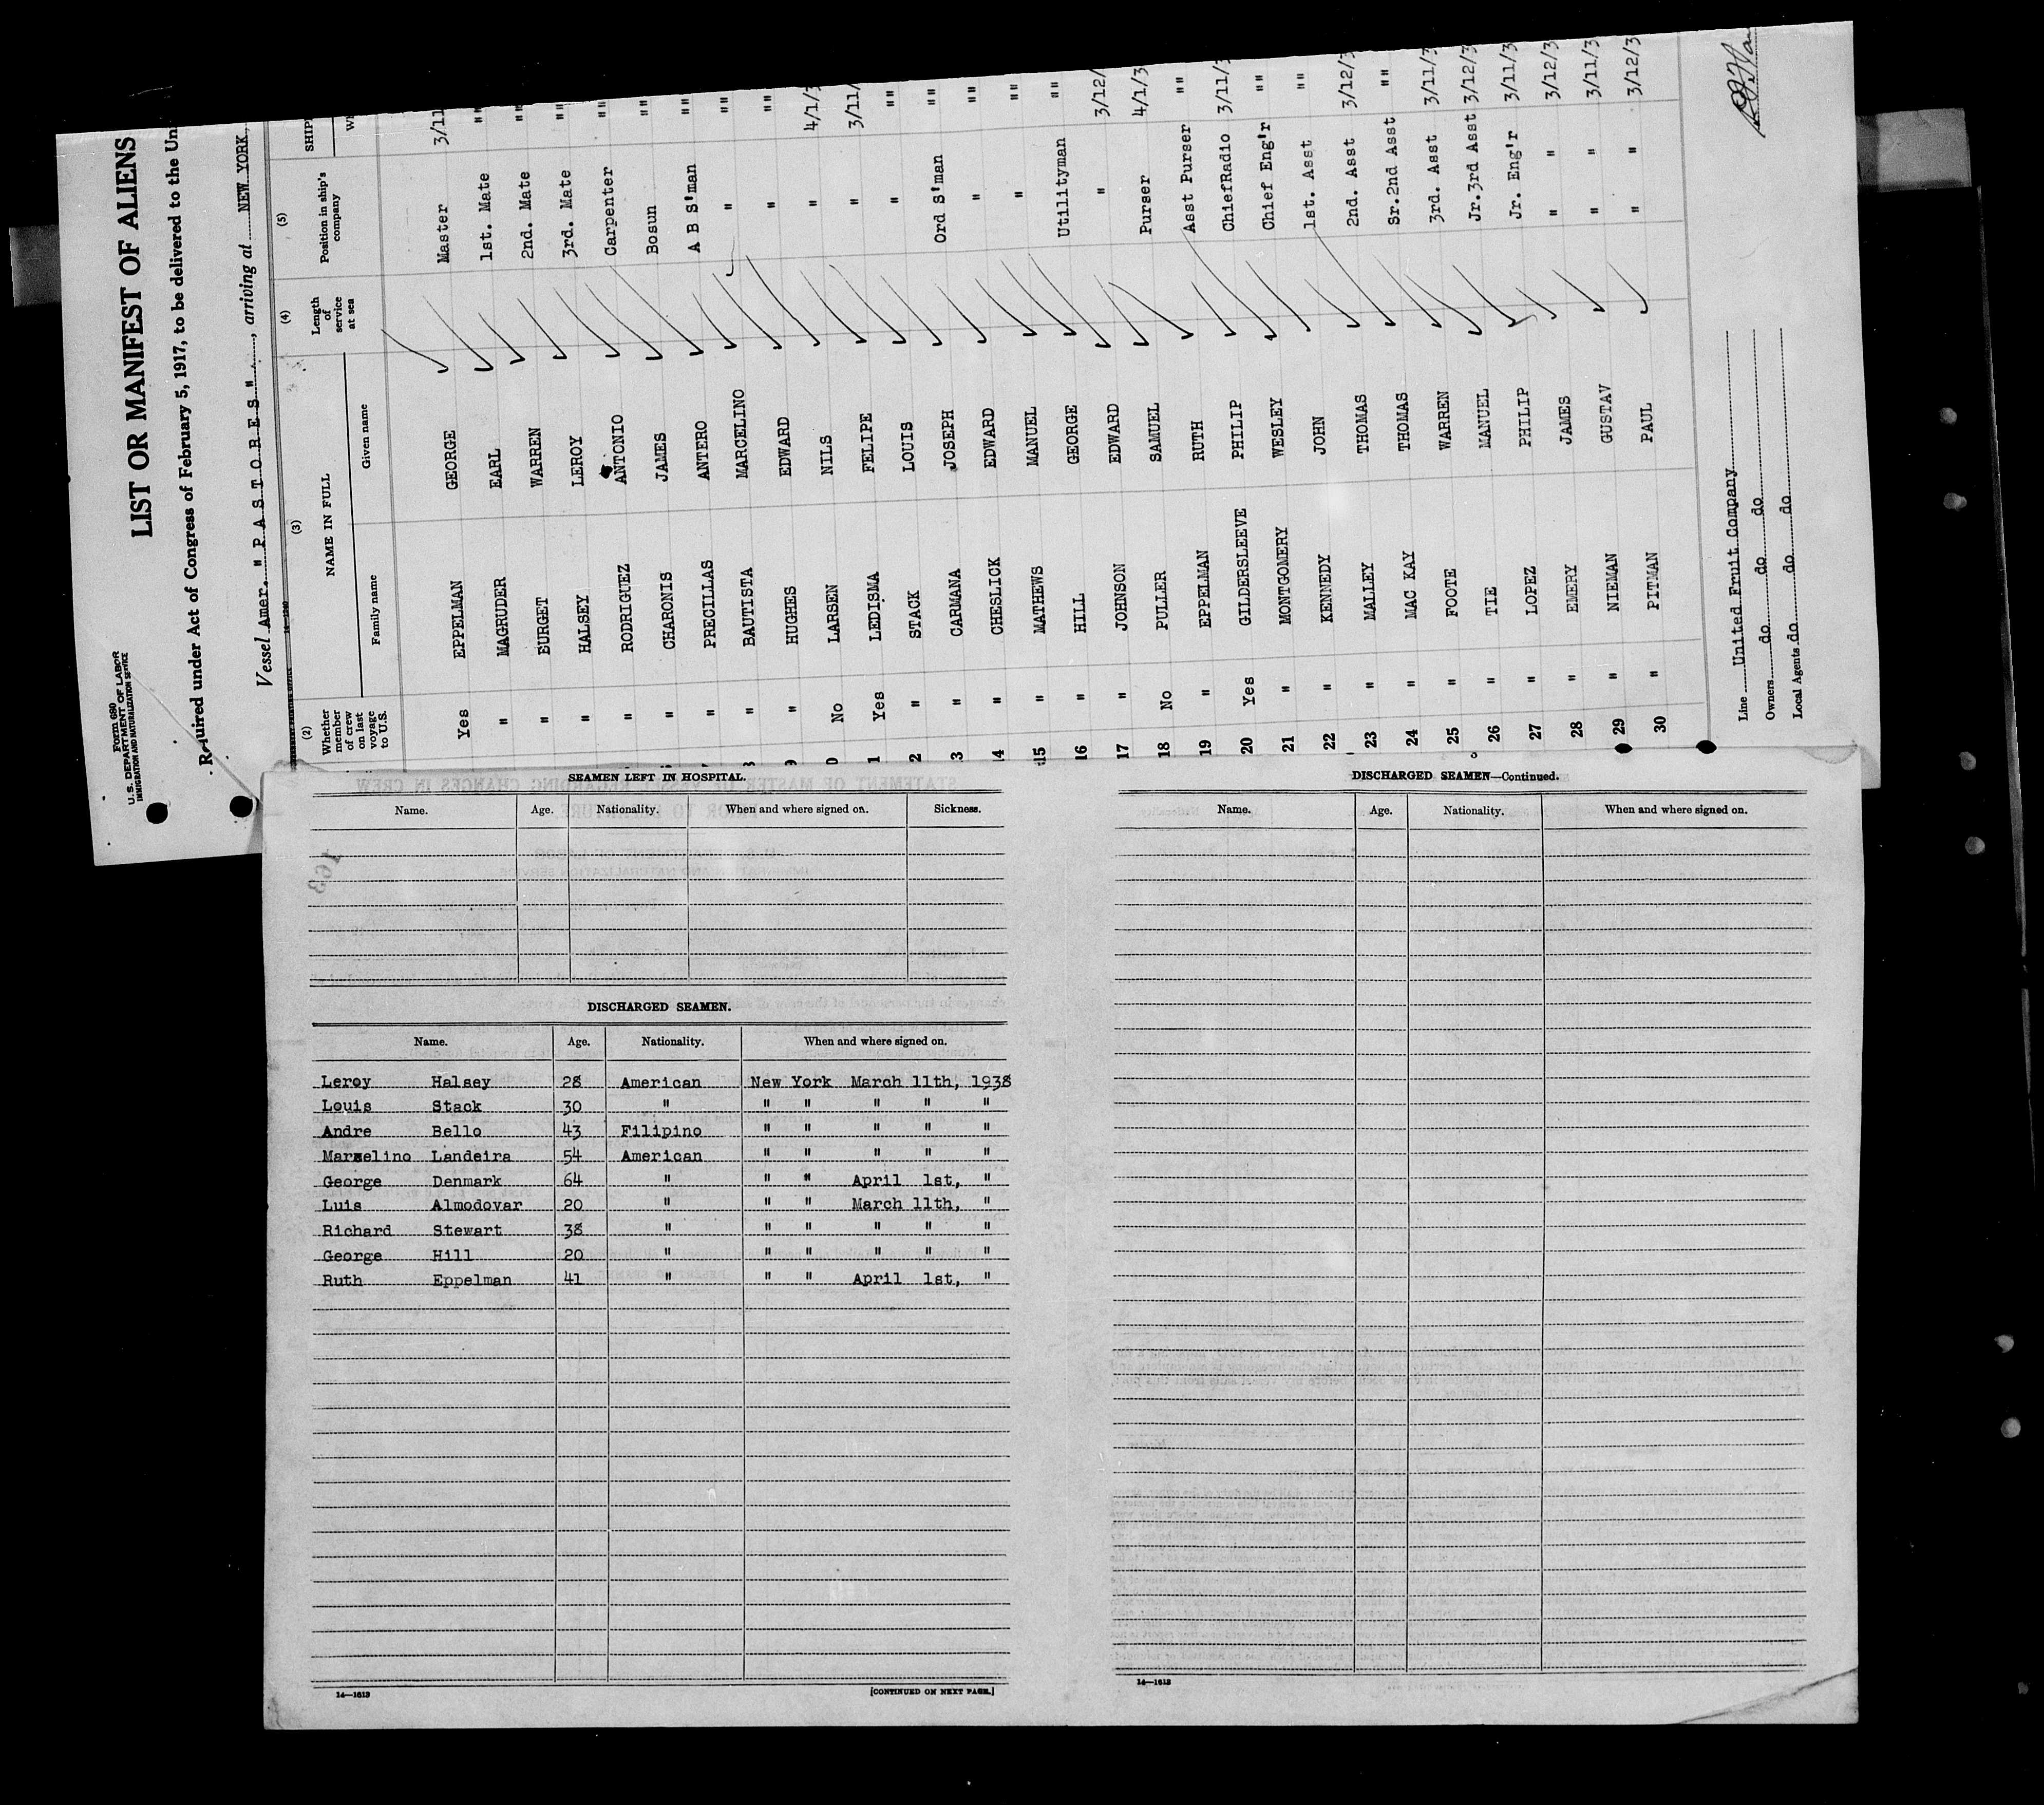 Form 680
U. S. DEPARTMENT OF LABOR
IMMIGRATION AND NATURALIZATION SERVICE
LIST OR MANIFEST OF ALIENS
Required under Act of Congress of February 5, 1917, to be delivered to the Un
Vessel Amer. " P A S T O R E S ", arriving at NEW YORK,
(2) (3) (4) (5)
Whether member of crew on last voyage to U.S. NAME IN FULL Length of service at sea Position in ship's company SHIPP
Family name Given name Wh
Yes EPPELMAN GEORGE Master 3/11
" MAGRUDER EARL 1st. Mate ""
" BURGET WARREN 2nd. Mate ""
" HALSEY LEROY 3rd. Mate ""
" RODRIGUEZ ANTONIO Carpenter ""
" CHARONIS JAMES Bosun ""
" PRECILLAS ANTERO A B S'man ""
" BAUTISTA MARCELINO " ""
" HUGHES EDWARD " ""
No LARSEN NILS " 4/1/3
1 Yes LEDISMA FELIPE " 3/11/
2 " STACK LOUIS " ""
3 " CARMANA JOSEPH Ord S'man ""
4 " CHESLICK EDWARD " ""
15 " MATHEWS MANUEL " ""
16 " HILL GEORGE Utilityman ""
17 " JOHNSON EDWARD " 3/12/
18 No PULLER SAMUEL Purser 4/1/3
19 " EPPELMAN RUTH Asst Purser ""
20 Yes GILDERSLEEVE PHILIP ChiefRadio 3/11/3
21 " MONTGOMERY WESLEY Chief Eng'r ""
22 " KENNEDY JOHN 1st. Asst ""
23 " MALLEY THOMAS 2nd. Asst 3/12/3
24 " MAC KAY THOMAS Sr.2nd Asst ""
25 " FOOTE WARREN 3rd. Asst 3/11/3
26 " TIE MANUEL Jr.3rd Asst 3/12/3
27 " LOPEZ PHILIP Jr. Eng'r 3/11/3
28 " EMERY JAMES " " 3/12/3
29 " NIEMAN GUSTAV " " 3/11/3
30 " PITMAN PAUL " " 3/12/3
Line United Fruit Company
Owners do do do
Local Agents do do do
SEAMEN LEFT IN HOSPITAL.
Name. Age. Nationality. When and where signed on. Sickness.
163
DISCHARGED SEAMEN.
Name. Age. Nationality. When and where signed on.
Leroy Halsey 28 American New York March 11th, 1938
Louis Stack 30 " " " " " "
Andre Bello 43 Filipino " " " " "
Marselino Landeira 54 American " " " " "
George Denmark 64 " " " April 1st, "
Luis Almodovar 20 " " " March 11th, "
Richard Stewart 38 " " " " " "
George Hill 20 " " " " " "
Ruth Eppelman 41 " " " April 1st, "
14—1613
[CONTINUED ON NEXT PAGE.]
DISCHARGED SEAMEN—Continued.
Name. Age. Nationality. When and where signed on.
14—1613